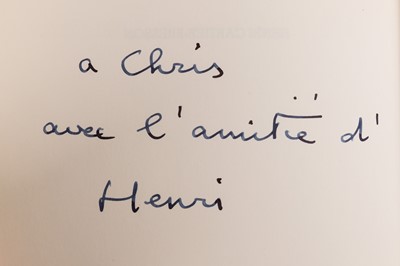 a Chris
avec l'amitié d'
Henri